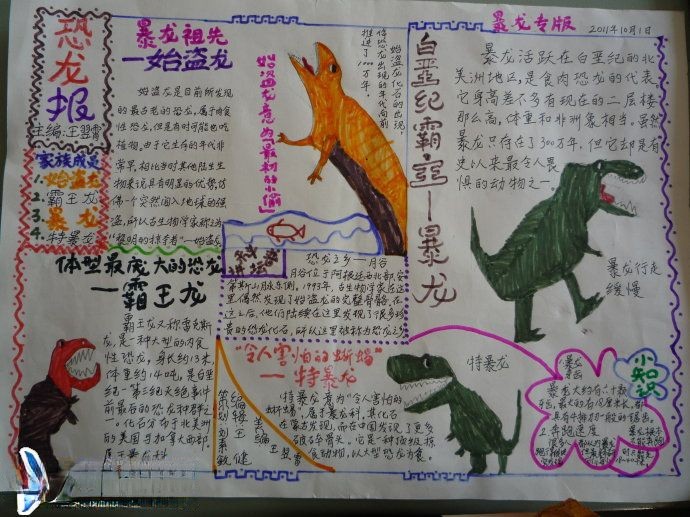 恐龙报
主编:王翌霄
家族成员
1. 始盗龙
2. 霸王龙
3. 暴龙
4. 特暴龙
暴龙祖先
—始盗龙
始盗龙是目前所发现
的最古老的恐龙,属于肉食
性恐龙,但是有时可能也吃
植物,由于它生存的年代非
常早,相比当时其他陆生生
物来说具有明显的优势,仿
佛一个突然闯入地球的强
盗,所以古生物学家称之为
始盗龙意为“最初的小偷”
始盗龙化石的出现,
使恐龙出现的年代向前
推进了1000万年。
暴龙专版
2011年10月1日
白垩纪霸主—暴龙
暴龙活跃在白垩纪的北
美洲地区,是食肉恐龙的代表。
它身高差不多有现在的二层楼
那么高,体重和非洲象相当,虽然
暴龙只存在了300万年,但它却是有
史以来最令人畏
惧的动物之一。
暴龙行走
缓慢
恐龙之乡—月谷
月谷位于阿根廷西北部,安
第斯山脉东侧,1993年,古生物学家在这
里偶然发现了始盗龙的完整骨骼,在
这之后,他们陆续在这里发现了很多珍
贵的恐龙化石,所以这里被称为恐龙之乡
体型最庞大的恐龙
—霸王龙
霸王龙又称雷克斯
龙,是一种大型的肉食
性恐龙,身长约13米,
体重约14吨,是白垩
纪—第三纪灭绝事件
前最后的恐龙种群之
一。化石分布于北美洲
的美国与加拿大西部,
属于暴龙科
“令人害怕的蜥蜴”
—特暴龙
特暴龙意为“令人害怕的
蜥蜴”,属于暴龙科,其化石
在蒙古发现,而在中国发现了更多
破碎骨头。它是种顶级掠
食动物,以大型恐龙为食。
特暴龙
小知识
暴龙
暴龙大约有六十颗
2.奔跑速度